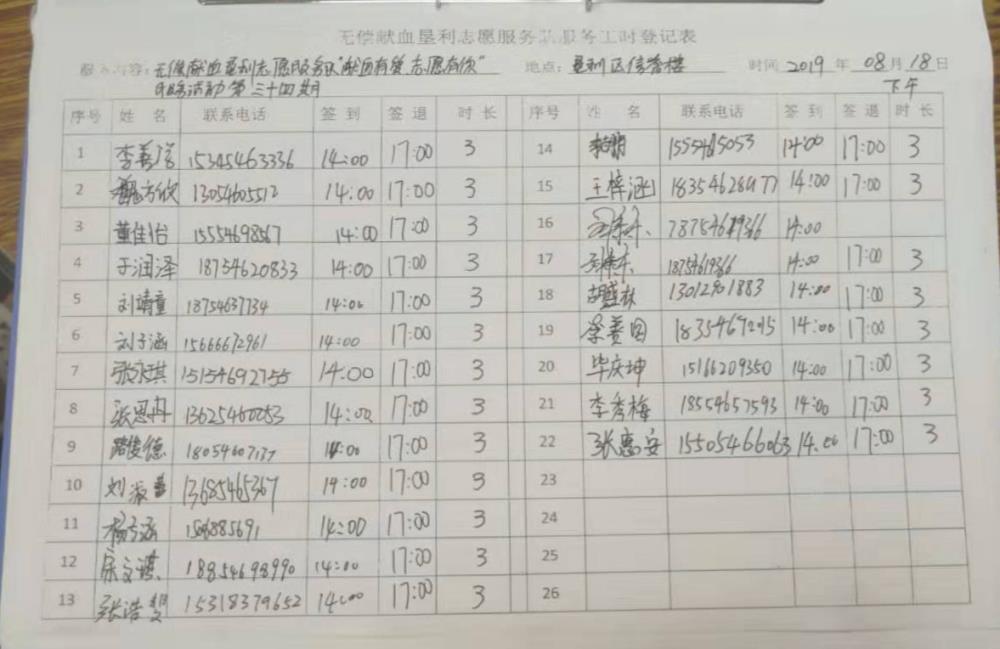 无偿献血垦利志愿服务队服务工时登记表
服务内容：无偿献血垦利志愿服务队"献血有爱 志愿有你" 地点：垦利区信誉楼 时间 2019 年 08 月 18 日
活动第三十四期 下午
序号 姓 名 联系电话 签 到 签 退 时 长 序号 姓 名 联系电话 签 到 签 退 时 长
1 李善 15345463336 14:00 17:00 3 14 14:00 17:00 3
2 方欣 13054605512 14:00 17:00 3 15 王梓涵 14:00 17:00 3
3 董佳怡 15554698567 14:00 17:00 3 16 14:00
4 于润泽 18754620833 14:00 17:00 3 17 18754619366 14:00 17:00 3
5 刘靖童 18754637734 14:00 17:00 3 18 胡盛林 13012901883 14:00 17:00 3
6 刘子涵 15666672961 14:00 17:00 3 19 14:00 17:00 3
7 张永琪 15154692755 14:00 17:00 3 20 毕庆坤 15166209350 14:00 17:00 3
8 张恩冉 13625460053 14:00 17:00 3 21 李秀梅 18554657593 14:00 17:00 3
9 路俊德 14:00 17:00 3 22 张惠安 15505466063 14:00 17:00 3
10 刘淑 13685465367 14:00 17:00 3 23
11 14:00 17:00 3 24
12 宋文祺 18854698990 14:00 17:00 3 25
13 张浩 15318379652 14:00 17:00 3 26